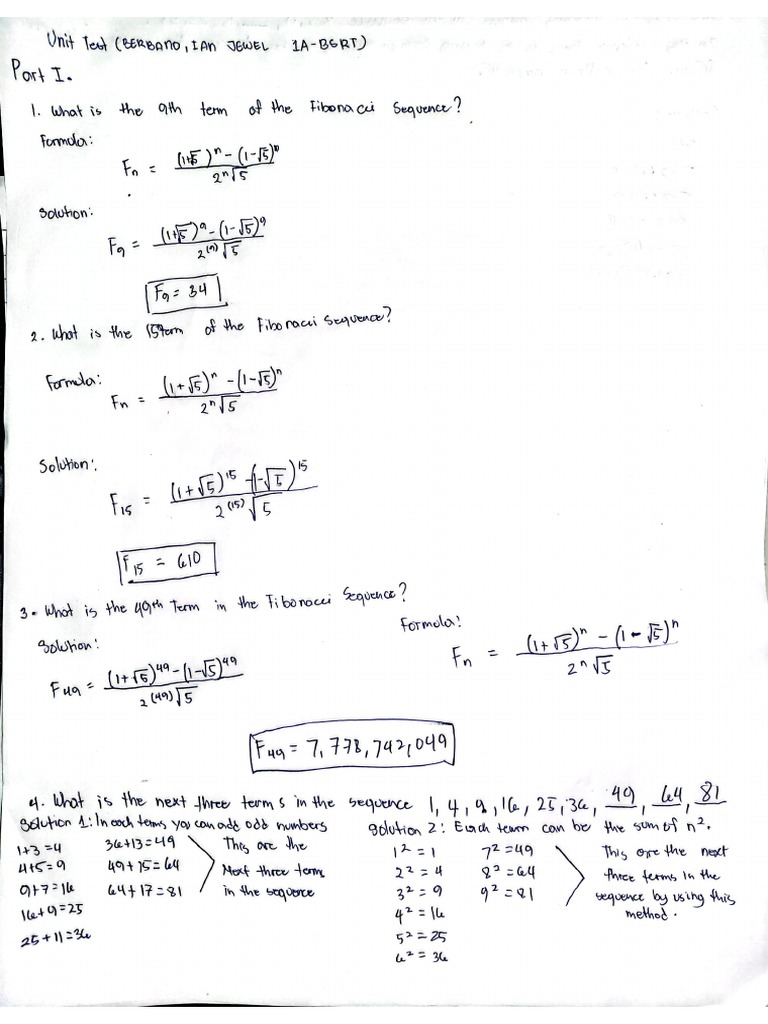 Unit Test (BERBANO, IAN JEWEL 1A-BSRT)
Part I.
1. What is the 9th term of the Fibonacci Sequence?
Formula:
Fn = (1+√5)^n - (1-√5)^n / 2^n √5
Solution:
F9 = (1+√5)^9 - (1-√5)^9 / 2^(9) √5
F9 = 34
2. What is the 15th term of the Fibonacci Sequence?
Formula:
Fn = (1+√5)^n - (1-√5)^n / 2^n √5
Solution:
F15 = (1+√5)^15 - (1-√5)^15 / 2^(15) √5
F15 = 610
3. What is the 49th Term in the Fibonacci Sequence?
Solution:
F49 = (1+√5)^49 - (1-√5)^49 / 2^(49) √5
Formula:
Fn = (1+√5)^n - (1-√5)^n / 2^n √5
F49 = 7,778,742,049
4. What is the next three terms in the sequence 1, 4, 9, 16, 25, 36, 49, 64, 81
Solution 1: In each terms you can add odd numbers
1+3=4
4+5=9
9+7=16
16+9=25
25+11=36
36+13=49
49+15=64
64+17=81
This are the
Next three term
in the sequence
Solution 2: Each term can be the sum of n².
1²=1
2²=4
3²=9
4²=16
5²=25
6²=36
7²=49
8²=64
9²=81
This are the next
three terms in the
sequence by using this
method.